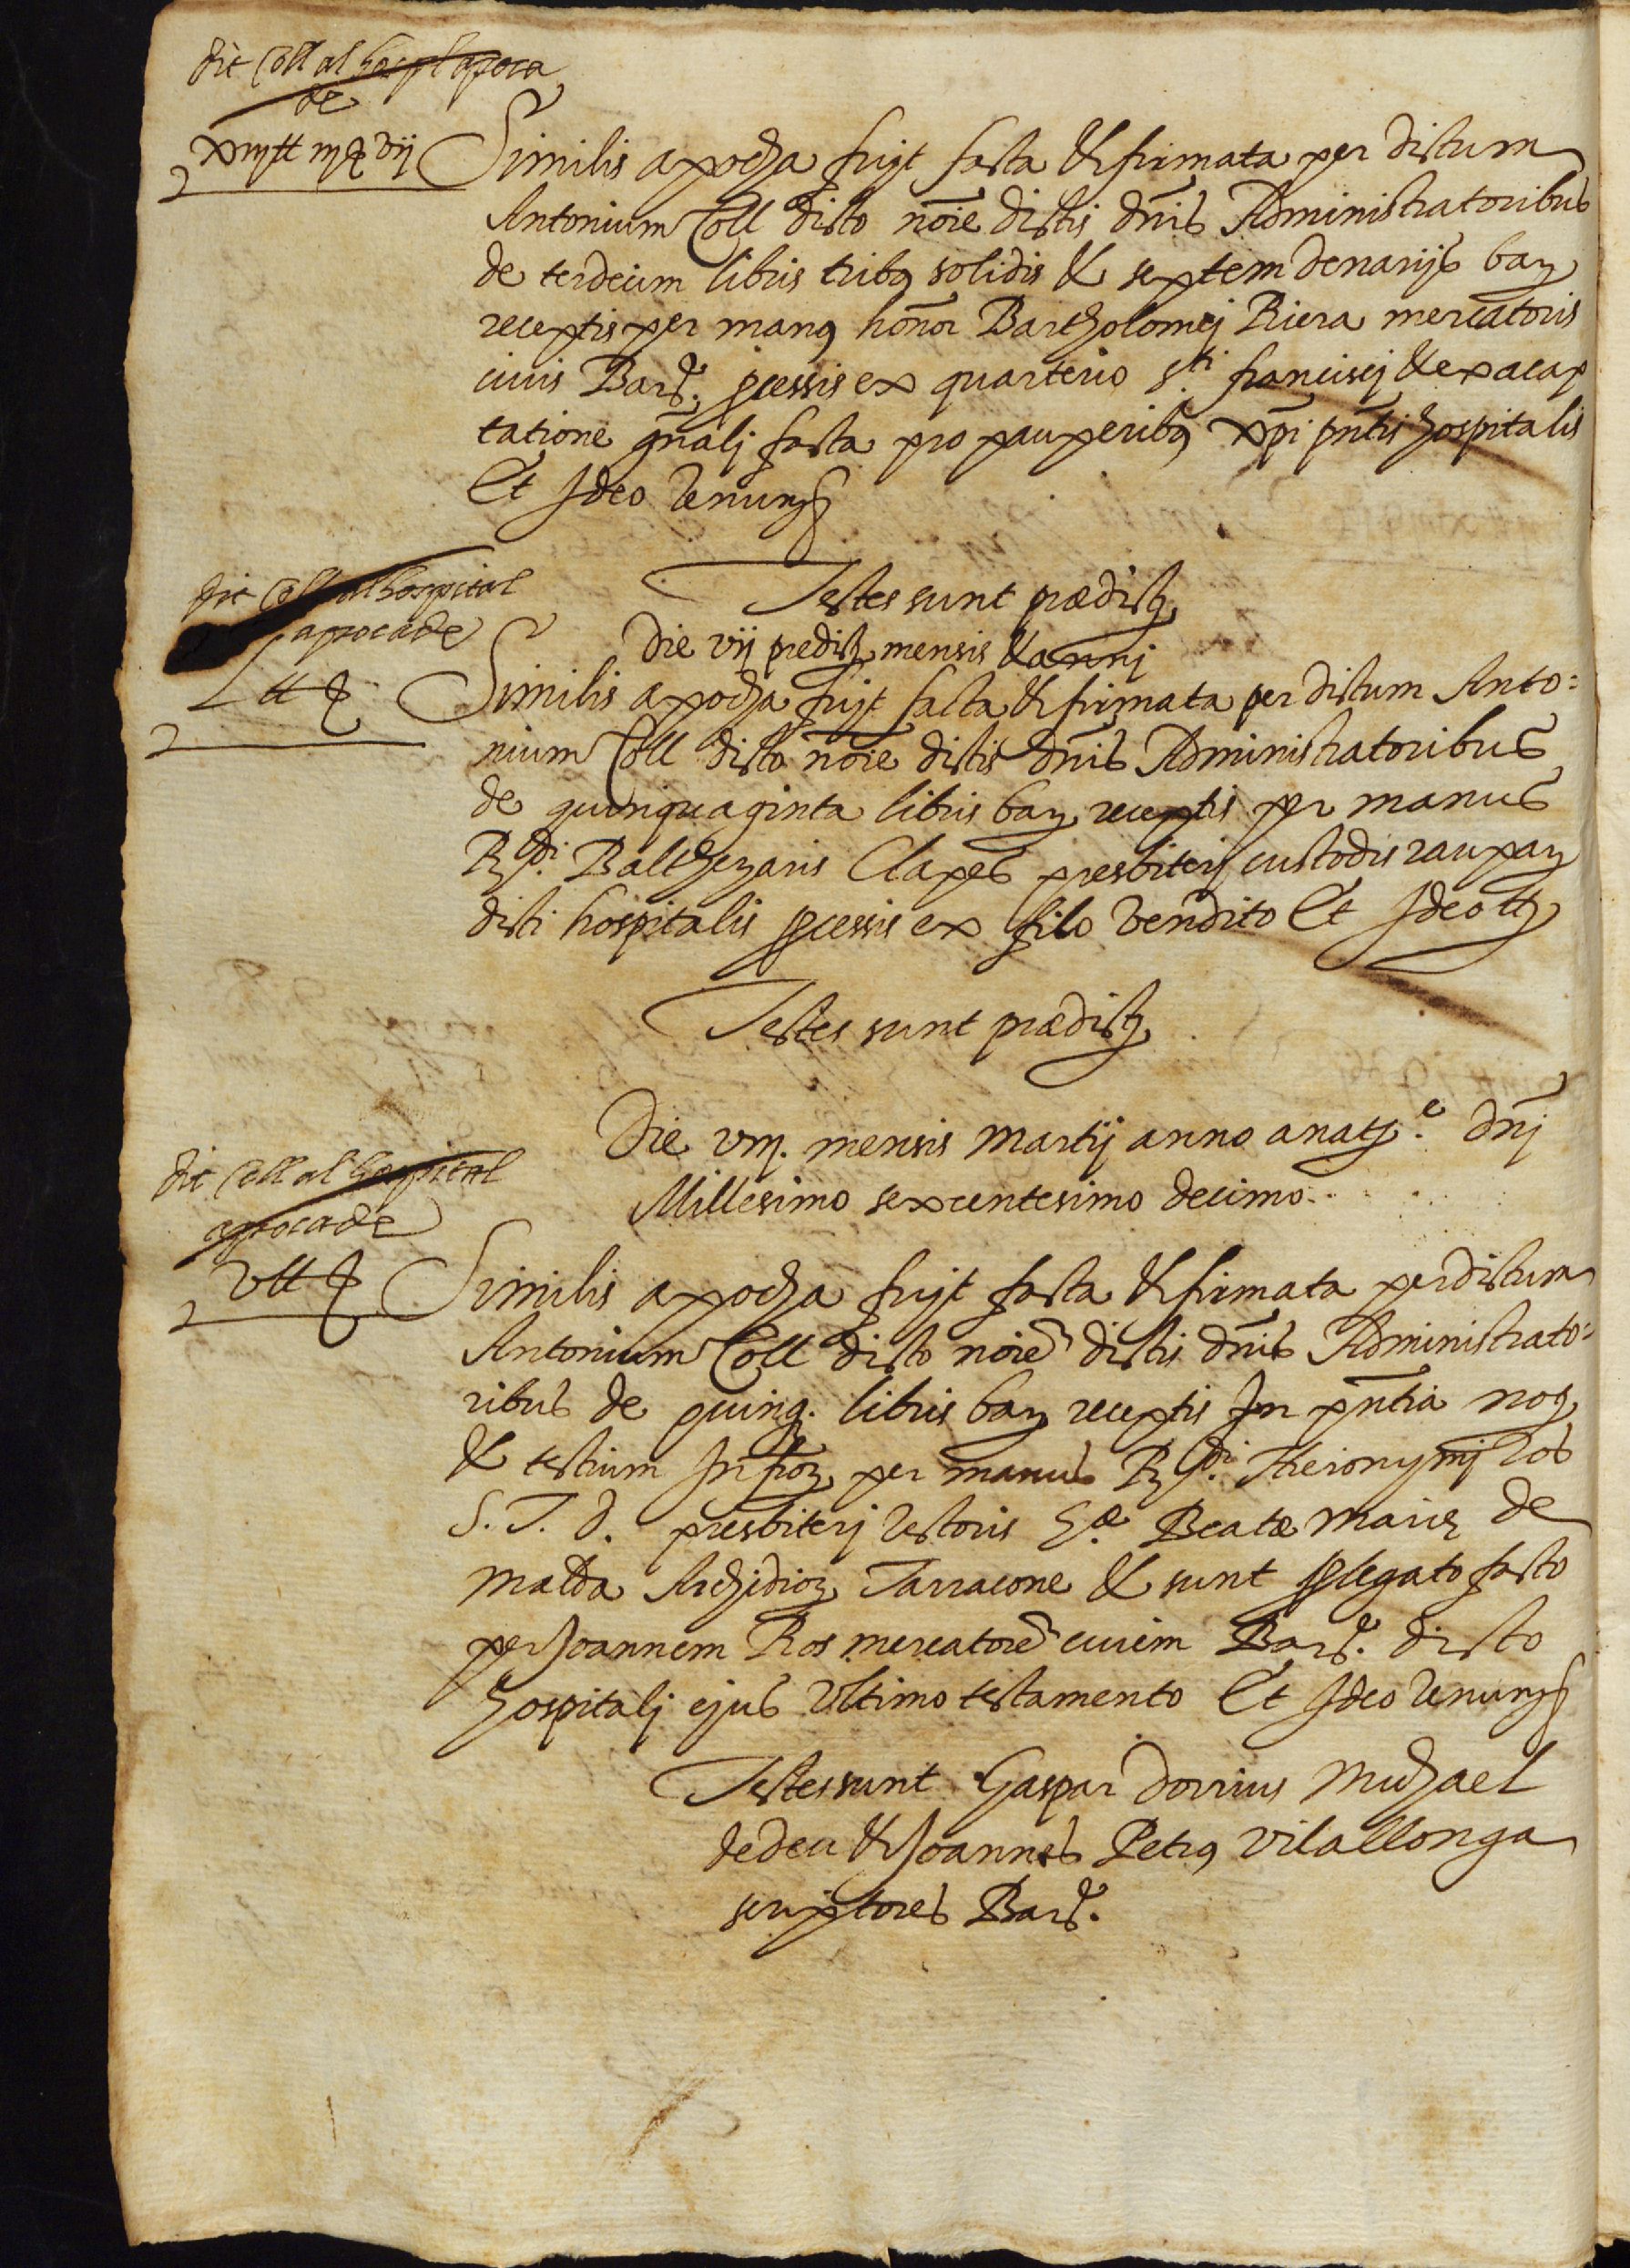 dit Coll al hospl apoca
de
xiij ll iij ẜ vij
Similis apocha fuijt facta & firmata per dictum
Antonium Coll dicto nōie dictis dn̄is Administratoribus
de terdecim libris tribꝰ solidis & septem denarijs bar͛
receptis per manꝰ honor Bartholomej Riera mercatoris
civis Barc̄. ꝓcessis ex quarterio s.ti francisci & ex acap
tatione gn̄alj facta pro pauperibꝰ xp̄i pn̄tis hospitalis
Et Ideo renunc͛
Testes sunt prædict͛
dit Coll al hospital
apoca de
L ll ẜ
Die vij predict͛ mensis & annj
Similis apocha fuijt facta & firmata per dictum Anto:
nium Coll dicto nōie dictis dn̄is Administratoribus
de quinquaginta libris bar͛ receptis per manus
R.di Balthezaris Clapes presbiterj custodis raupar͛
dicti hospitalis ꝓcessis ex filo vendito Et Ideo &͛
Testes sunt prædict͛
Die viij. mensis martij anno a nat͛.e dn̄j
Millesimo sexcentesimo decimo.
dit Coll al hospital
apoca de
v ll ẜ
Similis apocha fuijt facta & firmata per dictum
Antonium Coll dicto noie dictis dn̄is Administrato:
ribus de quinq. libris bar͛ receptis In pn̄tia not͛
& testium Infror͛ per manus R.di Hieronymj Ros
S. T. D. presbiterj Rectoris Ec.æ Beatæ Mariæ de
Malda Archidioc͛ Tarracone & sunt ꝓ legato facto
per Joannem Ros mercatore civem Barc̄. dicto
hospitalj ejus Ultimo testamento Et Ideo renunc͛
Testes sunt Gaspar Dorrius Michael
dedeu & Joannes Petrꝰ Vilallonga
scriptores Barc̄.